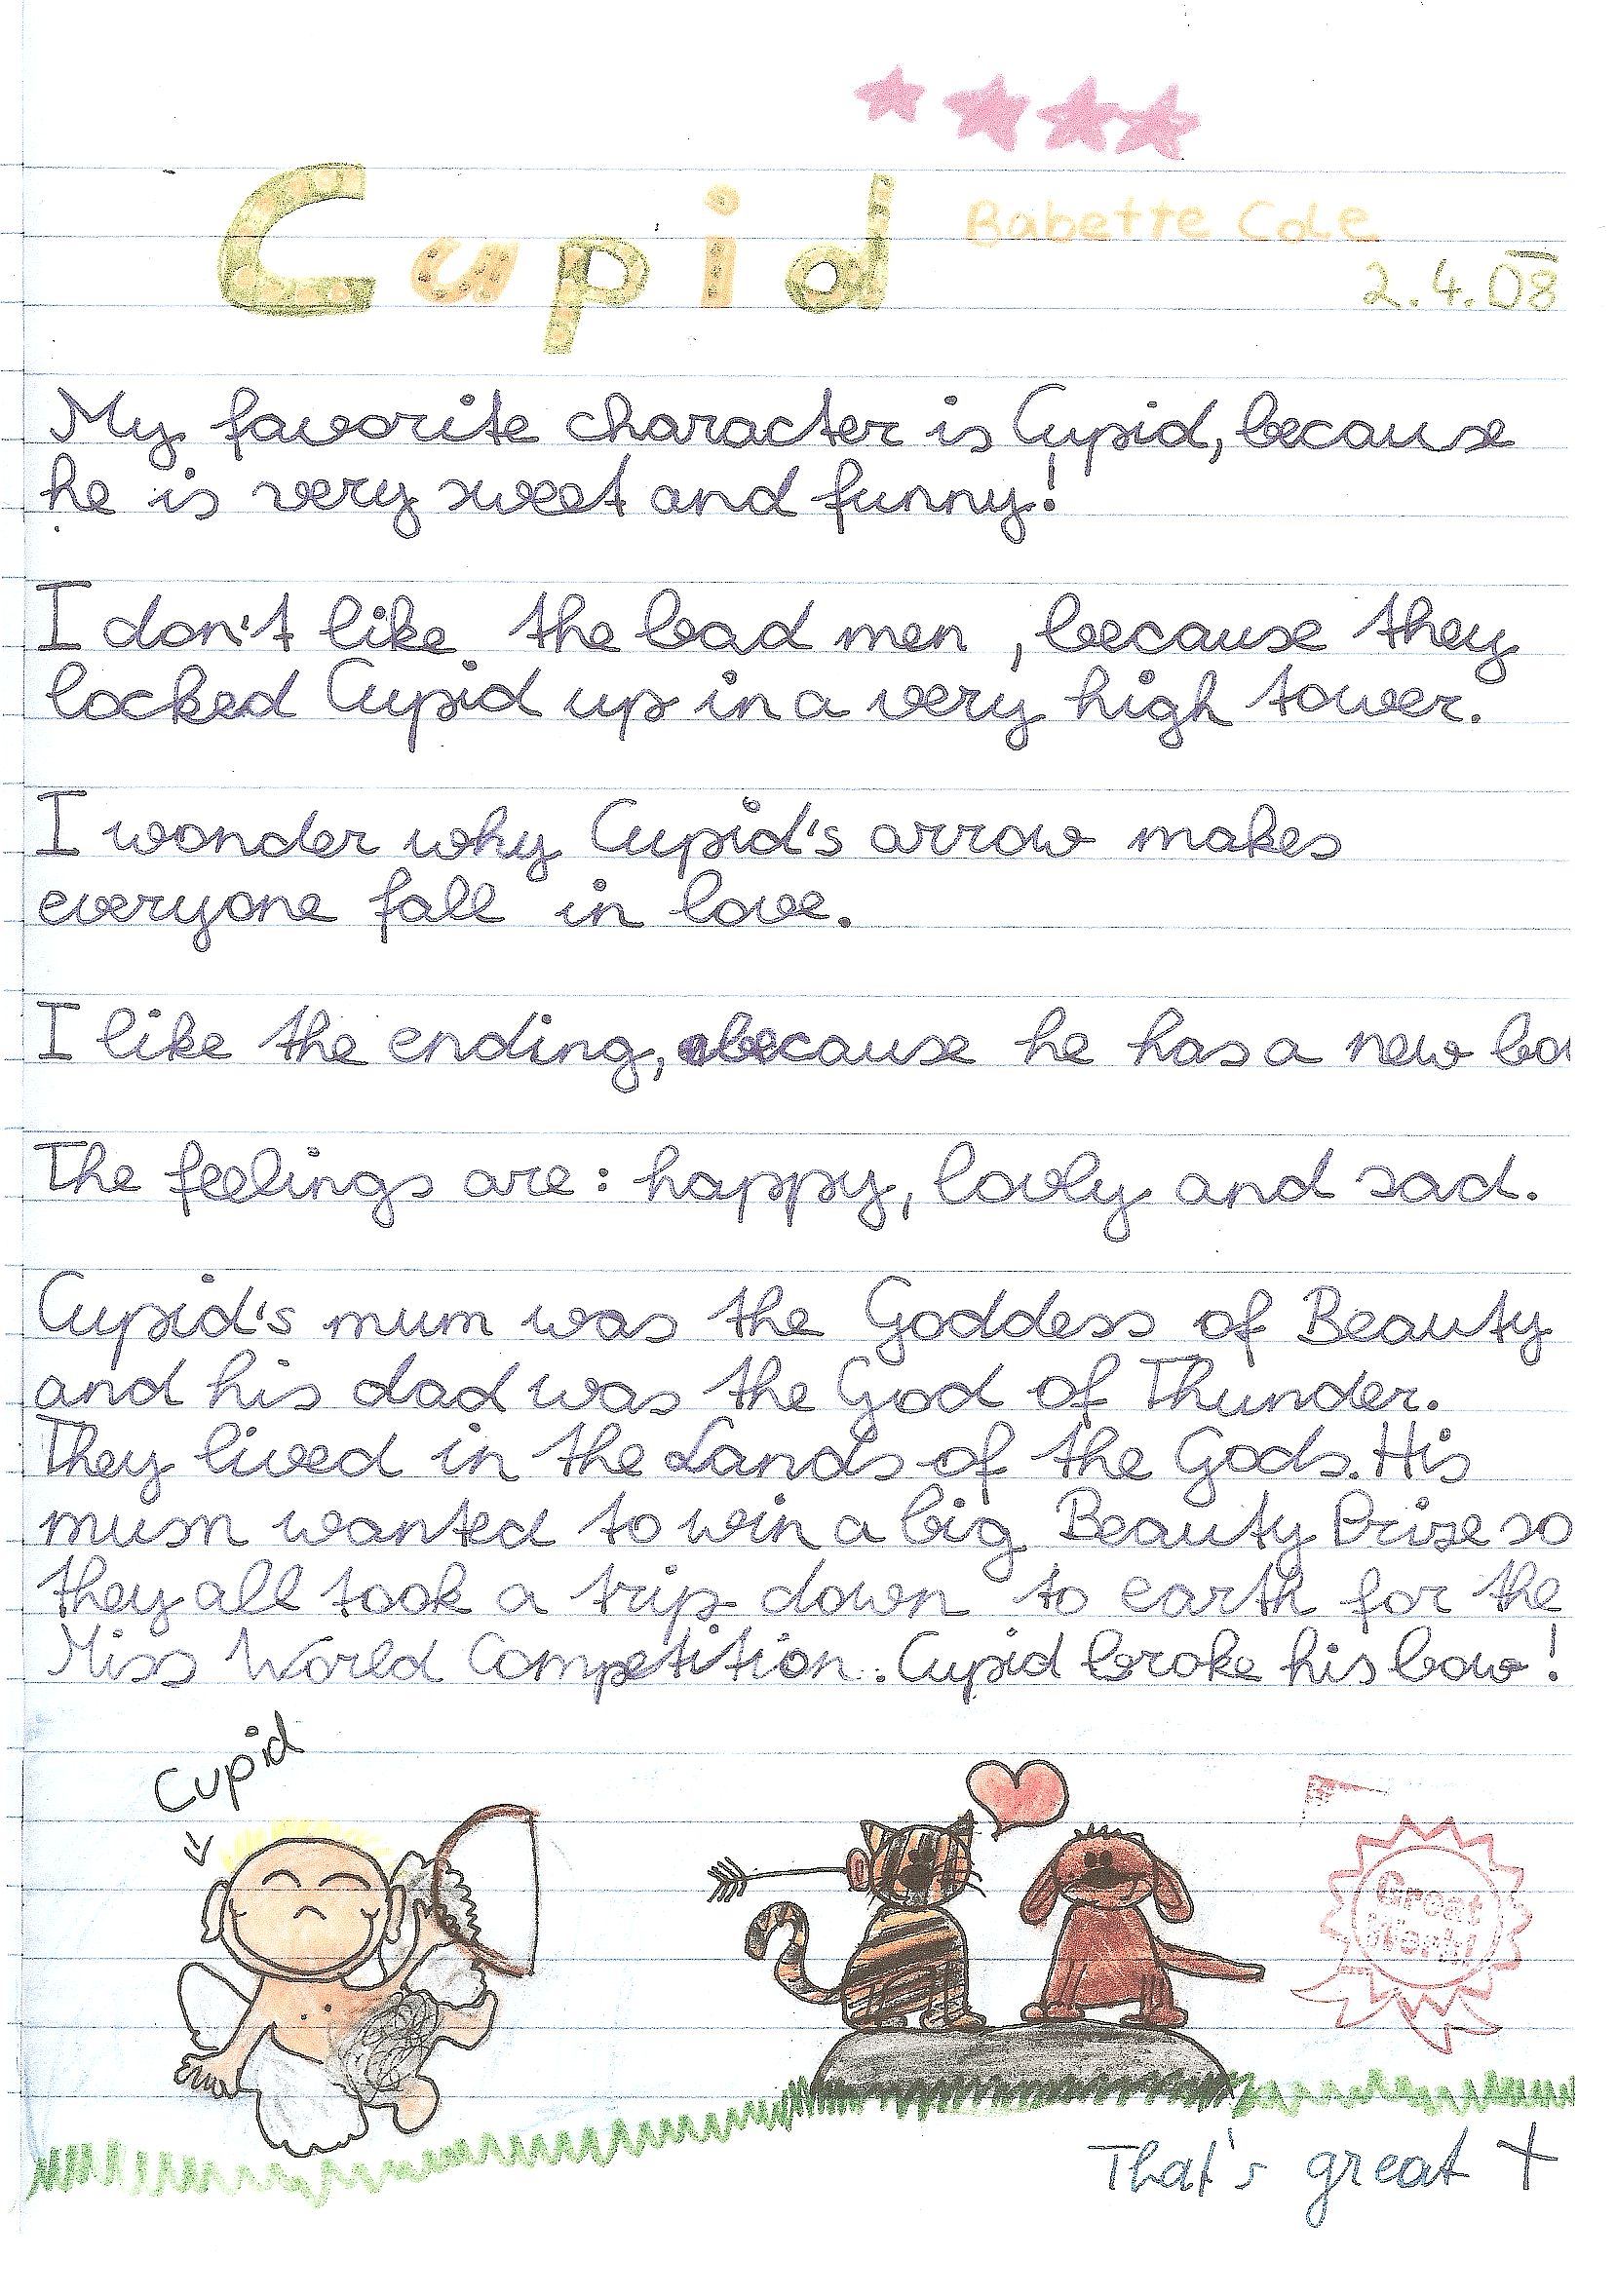 Cupid
Babette Cole
2.4.08
My favorite character is Cupid, because
he is very sweet and funny!
I don't like the bad men, because they
locked Cupid up in a very high tower.
I wonder why Cupid's arrow makes
everyone fall in love.
I like the ending, because he has a new bo
The feelings are: happy, lovly and sad.
Cupid's mum was the Goddess of Beauty
and his dad was the God of Thunder.
They lived in the Lands of the Gods. His
mum wanted to win a big Beauty Prize so
they all took a trip down to earth for the
Miss World Competition. Cupid broke his bow!
Cupid
Great
Work!
That's great +